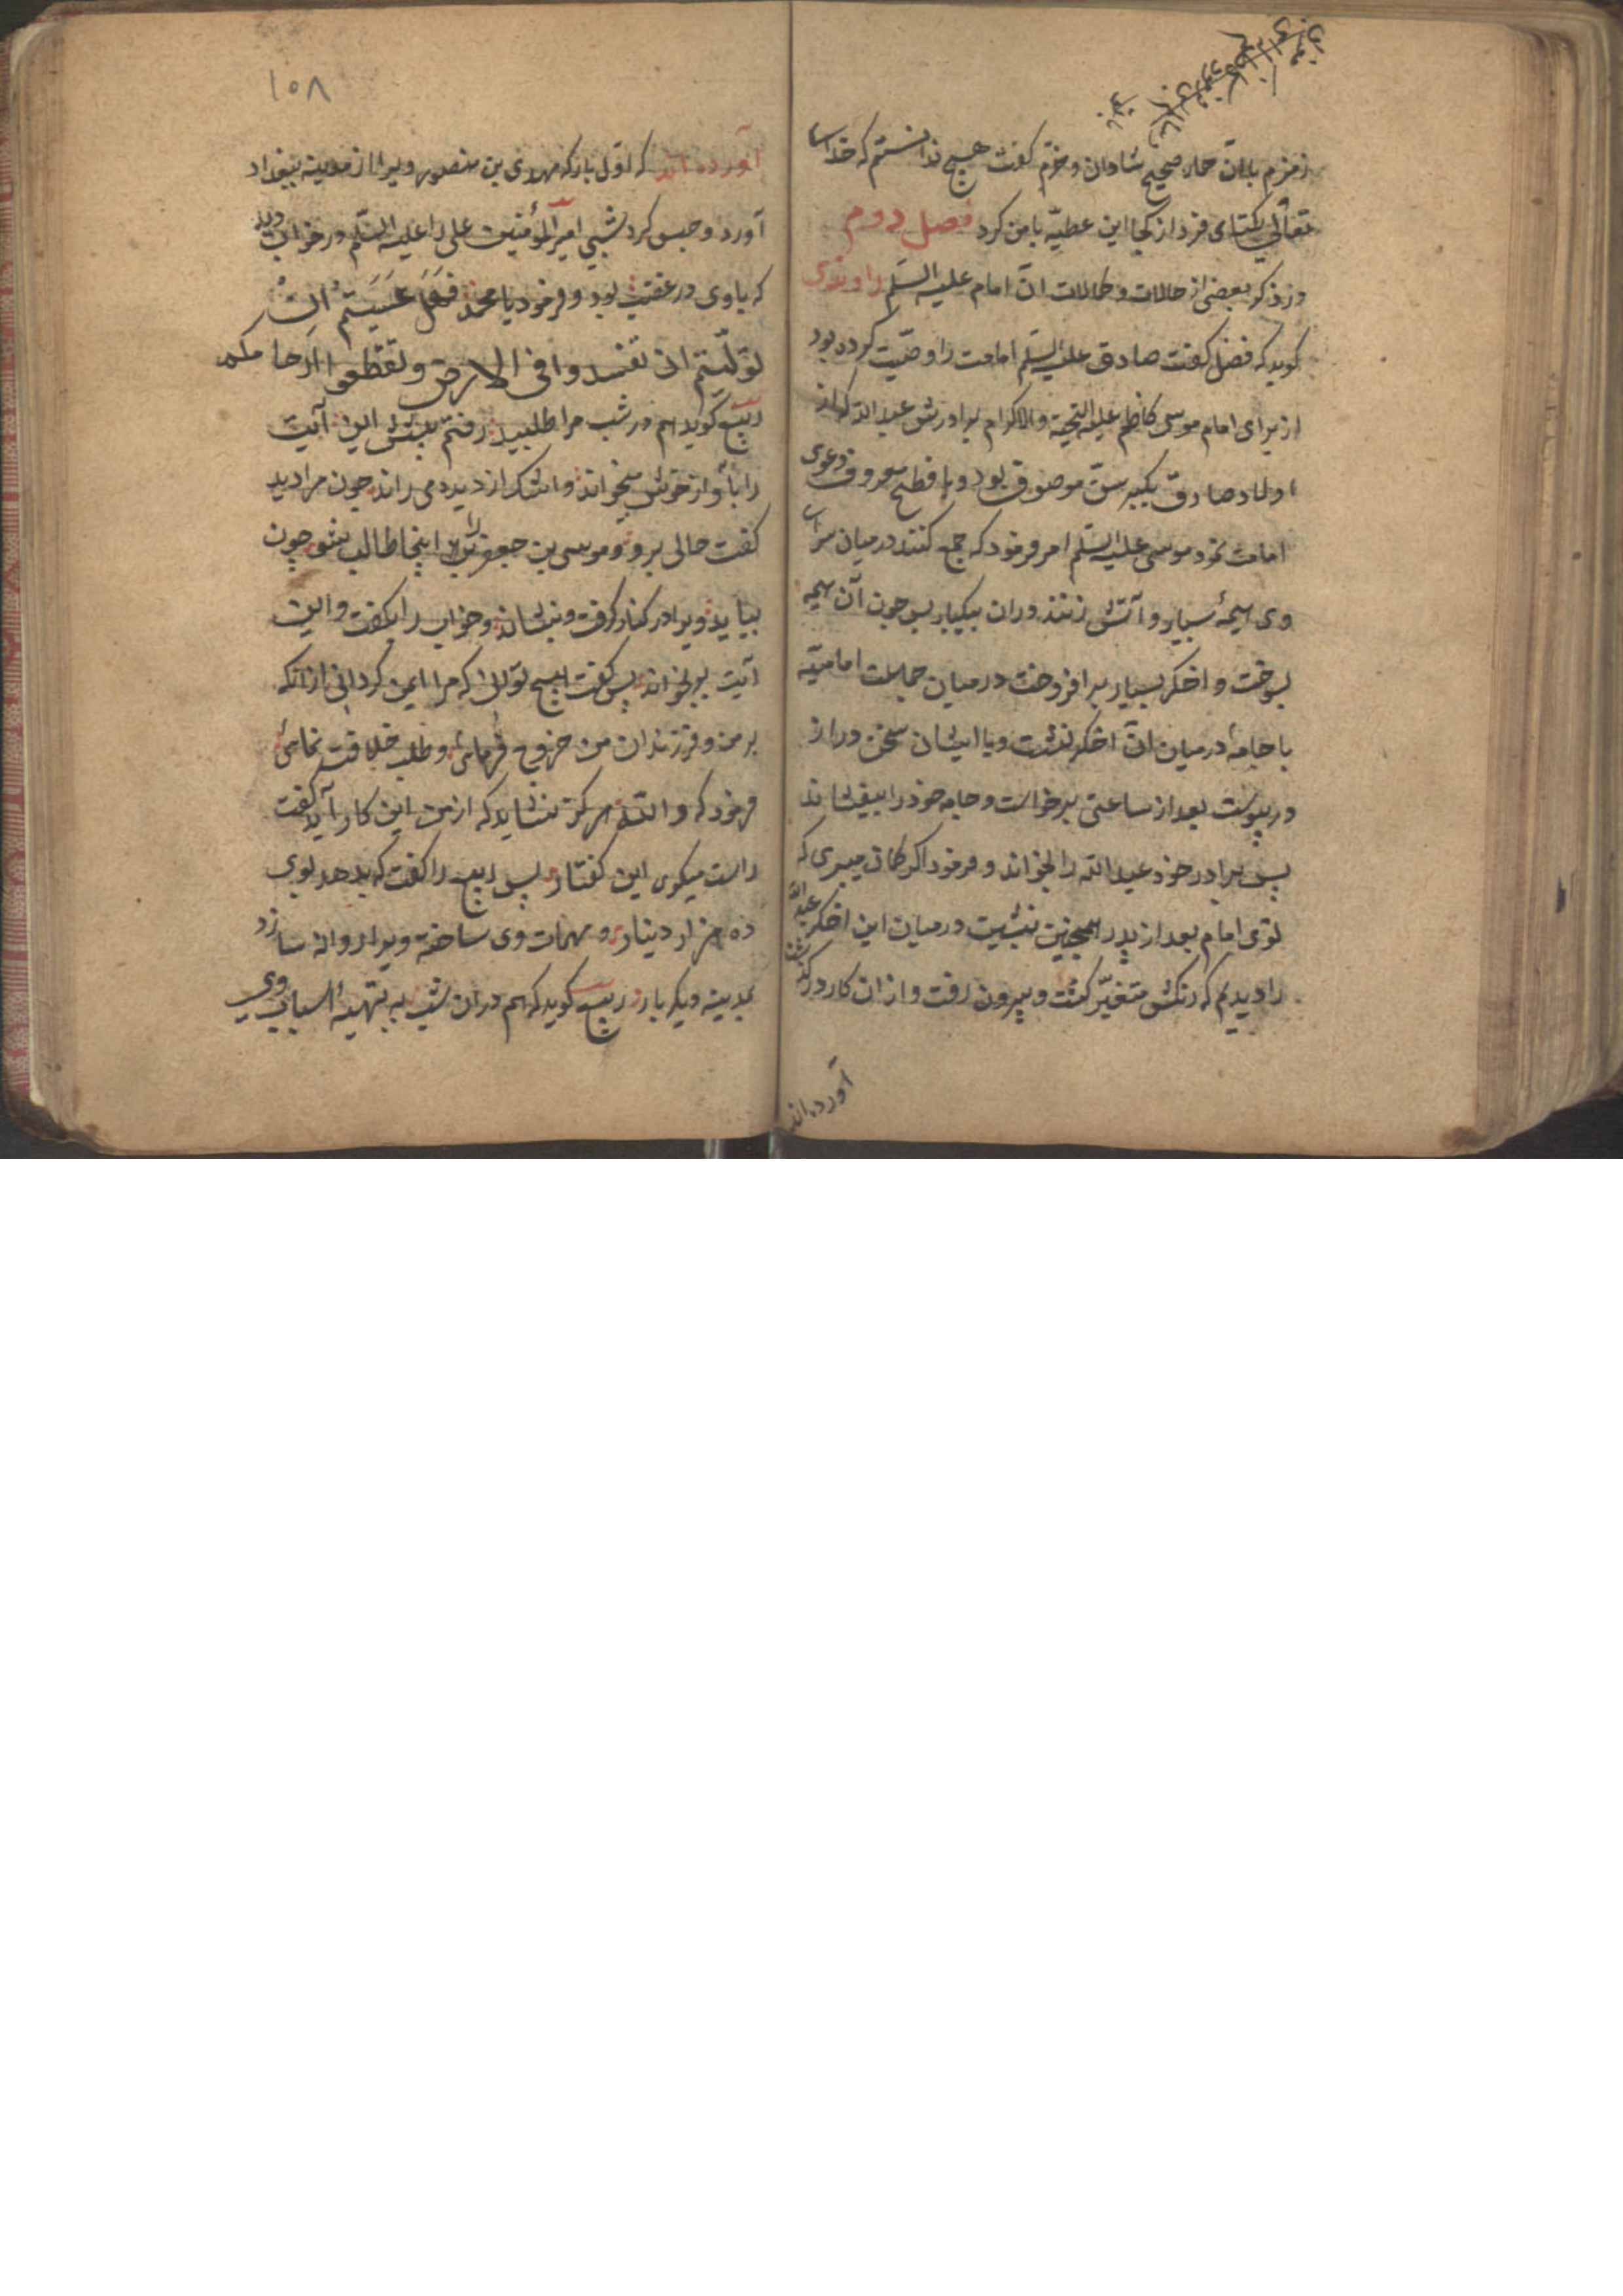 زمزم بابان حمار صحیح شادان و خرّم گفت هیچ ندانستم که خدا
تعالی یکتای فرد از کجا این عطیّه با من کرد فصل دوم
در ذکر بعضی از حالات و کمالات ان امام علیه السلم راوندی
کوید که فضل کفت صادق علیه السلم امامت را وصیّت کرده بود
از برای امام موسی کاظم علیه التحیة والاکرام برادرش عبد الله که از
اولاد صادق بکبر سنّ موصوف بود و با فطح معروف دعوی
امامت نمود موسی علیه السلم امر فرمود که جمع کنند در میان سرای
وی هیمهٔ بسیار و آتش زنند دران بیکبار پس چون آن هیمه
بسوخت و اخکر بسیار برافروخت در میان جماعت امامیّه
با جامه در میان ان اخکر نشست و با ایشان سخن دراز
در پیوست بعد از ساعتی برخواست و جامه خود را بیفشاند
پس برادر خود عبد الله را بخواند و فرمود اکر کمان میبری که
توی امام بعد از پدر همچنین بنشین در میان این اخکر عبدالله
را دیدم که رنکش متغیّر کشت و بیرون رفت و از ان کار درکذشت
آورده اند
۱۰۸
آورده اند که اوّل بار که مهدی بن منصور ویرا از مدینه ببغداد
آورد و حبس کرد شبی امیر المؤمنین علی را علیه السلم در خواب دید
که باوی در غضب بود و فرمود یا محمد فهل عسیتم ان
تولّیتم ان تفسدوا فی الارض و تقطعوا ارحامکم
ربیع کوید هم در شب مرا طلبید رفتم پیشش این آیت
را بآواز خوش میخواند و اشک از دیده می راند چون مرا دید
کفت حالی برو و موسی بن جعفر را اینجا طالب شو چون
بیاید ویرا در کنار کرفت و بنشاند و خواب را بکفت و این
آیت بر بخواند پس کفت هیچ توانی که مرا ایمن کردانی از انکه
بر من و فرزندان من خروج فرمائی و طلب خلافت نمائی
فرمود که و الله هرکز نشاید که از من این کار آید کفت
راست میکوی این کفتار پس ربیع را کفت که بدهد بوی
ده هزار دینار و مهمات وی ساخته ویرا روانه سازد
بمدینه دیکر بار ربیع کوید که هم در ان شب به تهیهٔ اسباب وی